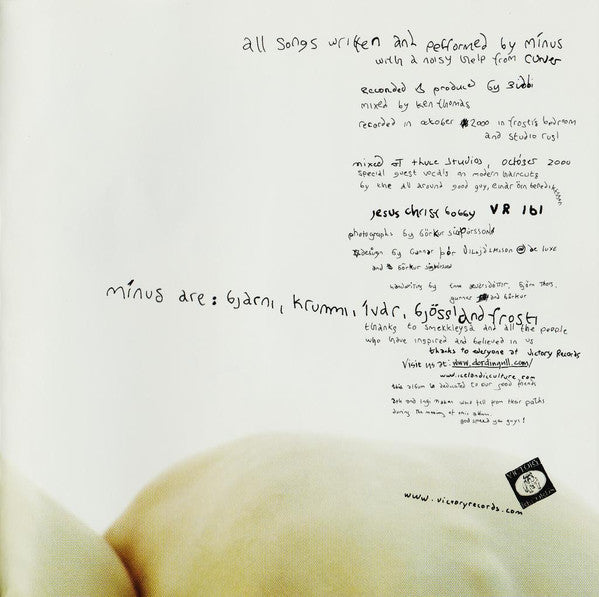 all songs written and performed by mínus
with a noisy help from curver
recorded & produced by Bibbi
mixed by ken thomas
recorded in october 2000 in frosti's bedroom
and studio rusl
mixed at thule studios, october 2000
special guest vocals on modern haircuts
by the all around good guy, einar örn benediktsson
jesus christ bobby VR 161
photographs by börkur sigþórsson
design by gunnar þór vilhjálmsson @ de luxe
and börkur sigþórsson
handwriting by björn thors,
gunnar and börkur
mínus are: bjarni, krummi, ívar, bjössi and frosti
thanks to smekkleysa and all the people
who have inspired and believed in us
thanks to everyone at victory Records
visit us at: www.dordingull.com/
www.icelandicculture.com
this album is dedicated to our good friends
and who fell from their paths
during the making of this album.
god speed you guys!
VICTORY
www.victoryrecords.com